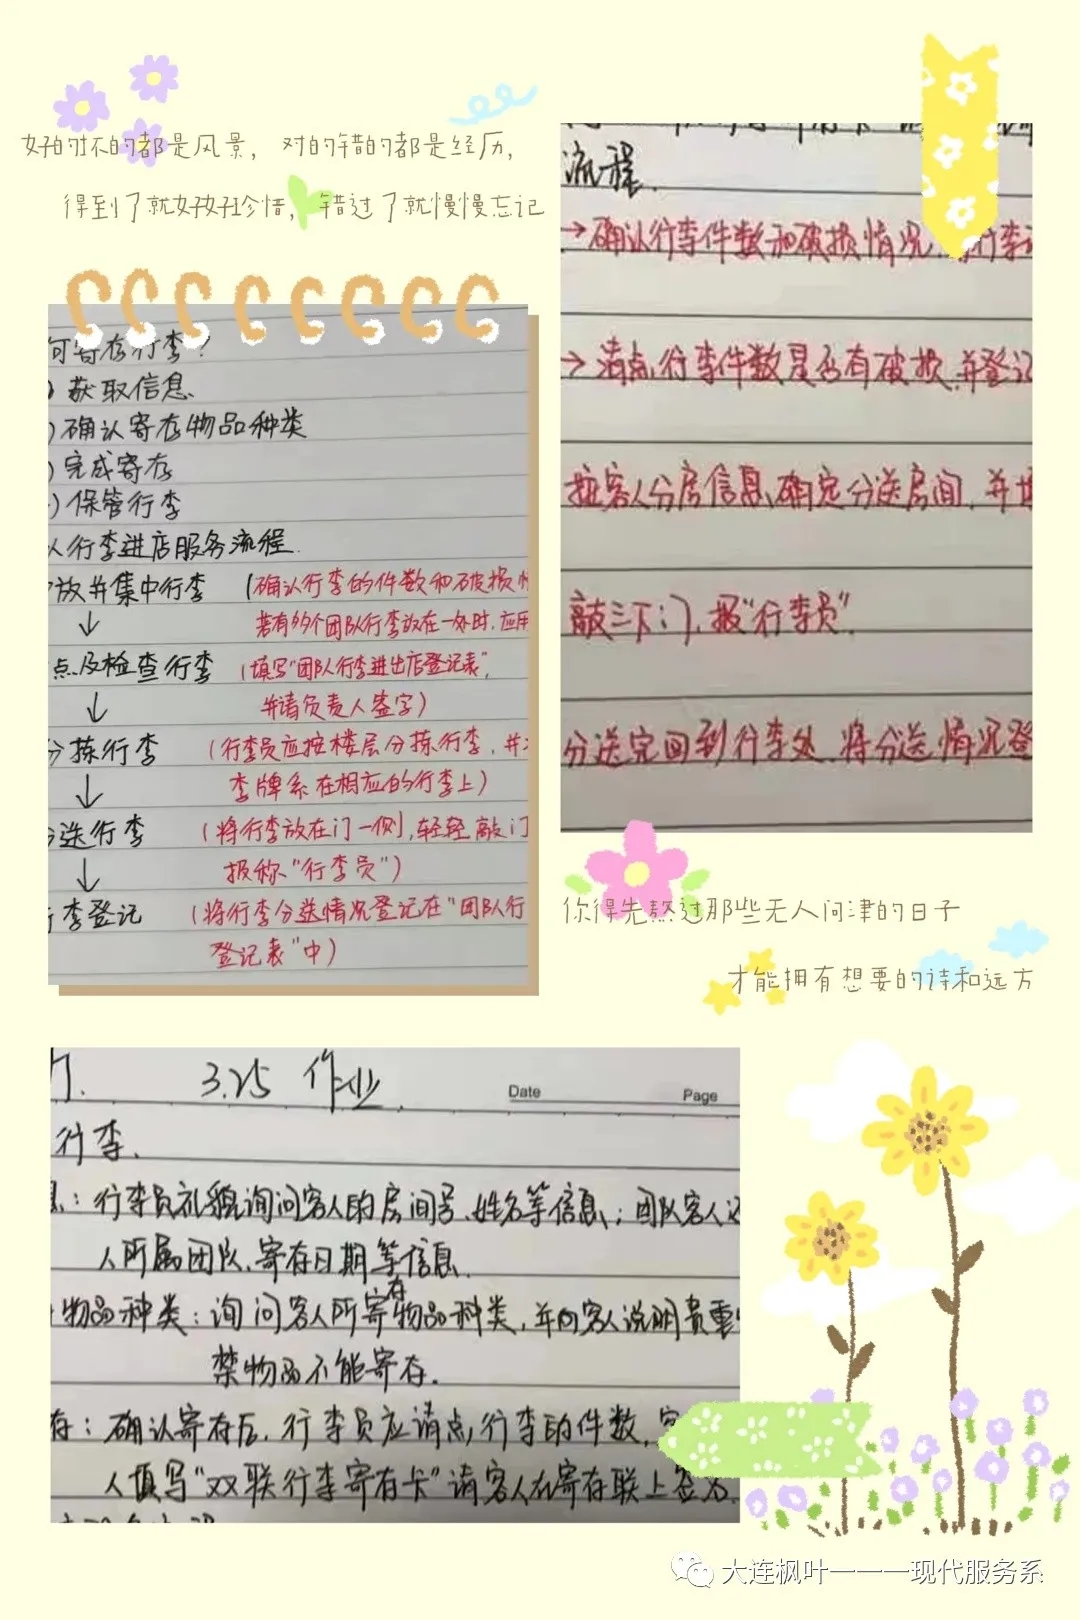 好的坏的都是风景，对的错的都是经历，
得到了就好好珍惜，错过了就慢慢忘记
何寄存行李？
）获取信息
）确认寄存物品种类
）完成寄存
）保管行李
人行李进店服务流程
放并集中行李（确认行李的件数和破损情
若有多个团队行李放在一处时，应用
↓
点及检查行李（填写“团队行李进出店登记表”，
并请负责人签字）
↓
分拣行李（行李员应按楼层分拣行李，并将
李牌系在相应的行李上）
↓
分送行李（将行李放在门一侧，轻轻敲门
报称“行李员”）
↓
行李登记（将行李分送情况登记在“团队行
登记表”中）
流程.
→确认行李件数和破损情况，行李
→清点行李件数是否有破损，并登记
据客人分房信息，确定分送房间，并填
敲三下：），报“行李员”.
分送完回到行李处，将分送情况登
你得先熬过那些无人问津的日子
才能拥有想要的诗和远方
3.25 作业.
Date Page
行李.
息：行李员礼貌询问客人的房间号、姓名等信息；团队客人还
人所属团队、寄存日期等信息.
物品种类：询问客人所寄存物品种类，并向客人说明贵重
禁物品不能寄存.
存：确认寄存后，行李员应请点行李的件数，
人填写“双联行李寄存卡”请客人在寄存联上签名.
大连枫叶———现代服务系